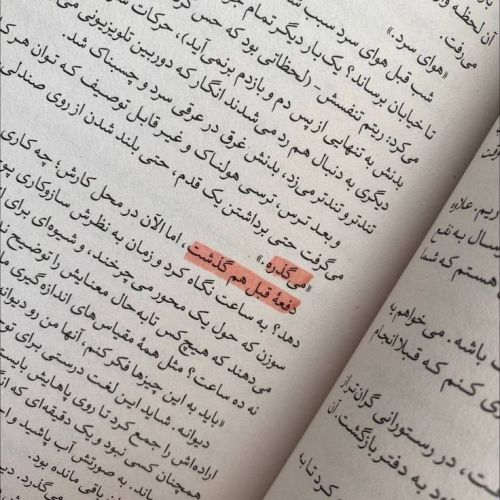 آن لحظه و
می‌رفت.
«هوای سرد.»
شب قبل هوای سرد سبب ش
تا خیابان برساند؟ یک بار دیگر تمام جز
می‌کرد: ریتم تنفسش- (لحظاتی بود که حس کرد
بدنش به تنهایی از پس دم و بازدم برنمی‌آید)، حرکات
دیگری به دنبال هم رد می‌شدند انگار که دوربین تلویزیونی می
تندتر و تندتر می‌زد، بدنش غرق در عرقی سرد و چسبناک شد.
و بعد ترس، ترسی هولناک و غیر قابل توصیف که توان هر کا
می‌گرفت حتی برداشتن یک قدم، حتی بلند شدن از روی صندلی
«می‌گذره.»
دفعهٔ قبل هم گذشت، اما الآن در محل کارش؛ چه کاری
دهد؟ به ساعت نگاه کرد و زمان به نظرش سازوکاری پو
سوزن که حول یک محور می‌چرخند، و شیوه‌ای برای ا
می‌دهند که هیچ کس تا به حال معنایش را توضیح ند
نه ده ساعت؟ مثل همهٔ مقیاس های اندازه‌گیری ما
«باید به این چیزها فکر کنم، آنها من رو دیوانه
دیوانه. شاید این لغت درستی برای تو
اراده‌اش را جمع کرد تا روی پاهایش بایست
همچنان کسی نبود و یک دقیقه‌ای که انگ
ساند. به صورتش آب پاشید و ا
باقی مانده بود.
می‌گذرد.
ریم. علاوه
رسال به نفع
هستم که شما
باشه. می‌خواهم به
ی کنم که قبلا انجام
ت، در رستورانی گران‌تر از
د به دفتر بازگشت، آن
کرد تا به